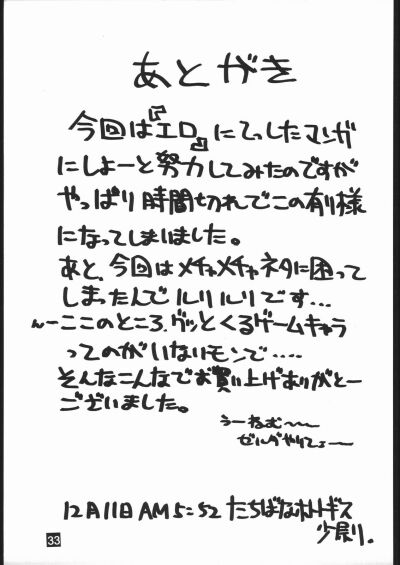 あとがき
今回は『エロ』にてっしたマンガ
にしよーと努力してみたのですが
やっぱり時間切れでこの有り様
になってしまいました。
あと、今回はメチャメチャネタに困って
しまったんでルリルリです…
んーここのところ、グッとくるゲームキャラ
ってのがいないモンで‥‥
そんなこんなでお買い上げありがとー
ございました。
うーねむ〜〜
ゼルダやりてぇー
12月11日AM5:52 たちばなホトトギス
33